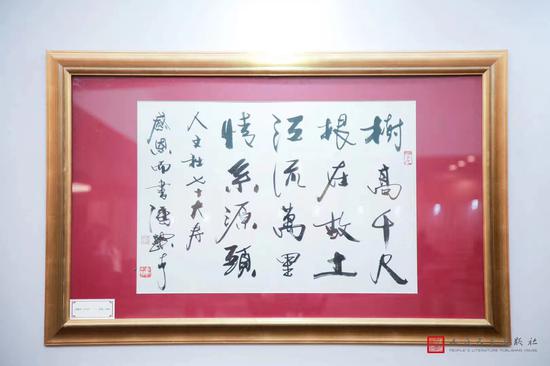 樹高千尺
根在故土
江流萬里
情系源頭
人文社七十大寿
感恩而書馮驥才
人民文学出版社
PEOPLE'S LITERATURE PUBLISHING HOUSE